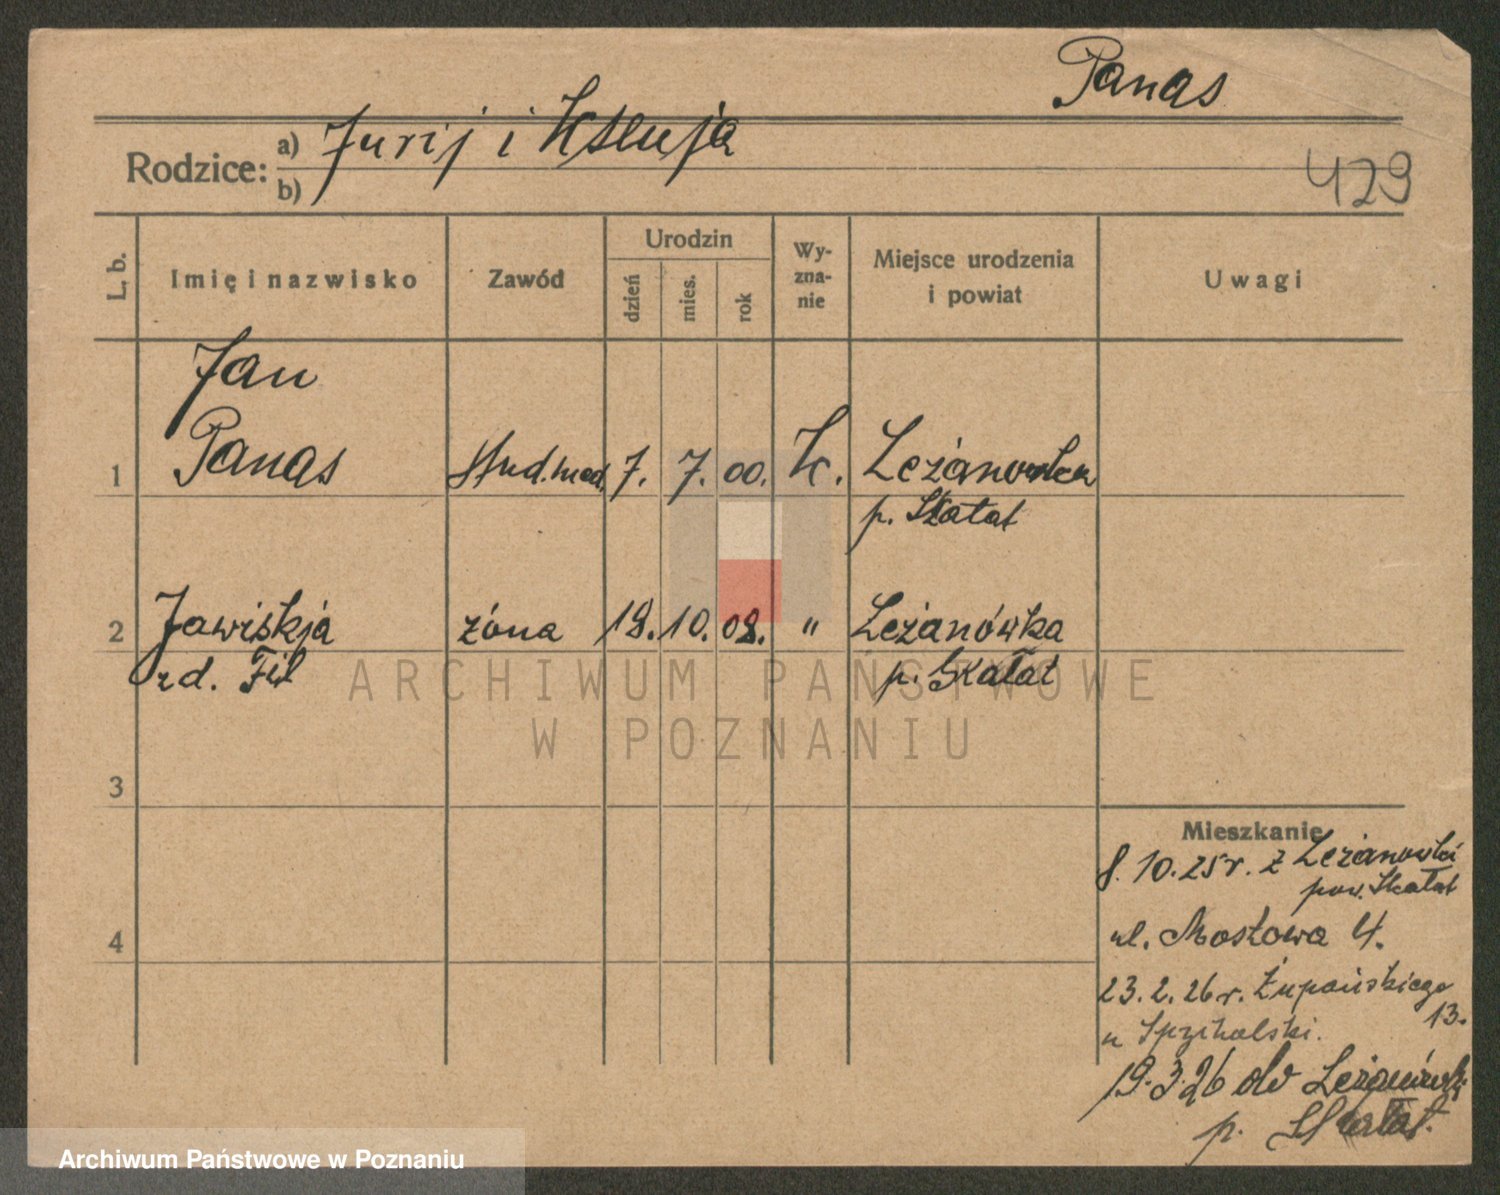 Panas
Rodzice: a) Jurij i Ksenja
b)
429
L. b.
Imię i nazwisko
Zawód
Urodzin
dzień
mies.
rok
Wy-
zna-
nie
Miejsce urodzenia
i powiat
Uwagi
Jan
1 Panas stud. med. 7. 7. 00. K. Leżanówka
p. Skałat
2 Jawiskja żona 18. 10. 08. " Leżanówka
rd. Fil p. Skałat
3
4
Mieszkanie
8. 10. 25 r. z Leżanówki
pow. Skałat
ul. Mostowa 4.
23. 2. 26 r. Żupańskiego
13.
u
19. 3. 26 do Leżanówki
p. Skałat.
ARCHIWUM PAŃSTWOWE
W POZNANIU
Archiwum Państwowe w Poznaniu